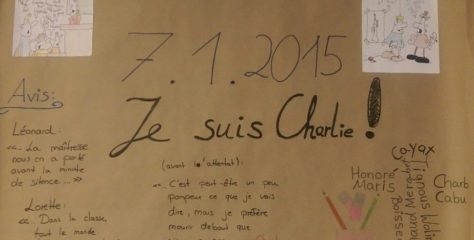 7.1.2015
Je suis Charlie !
Avis:
Léonard:
«.. La maîtresse
nous en a parlé
avant la minute
de silence...»
Lorette:
«.. Dans la classe,
tout le monde
(avant l'attentat):
«.. C'est peut-être un peu
pompeux ce que je vais
dire, mais je préfère
mourir debout que
Honoré
Maris
Cayax
Charb
Cabu